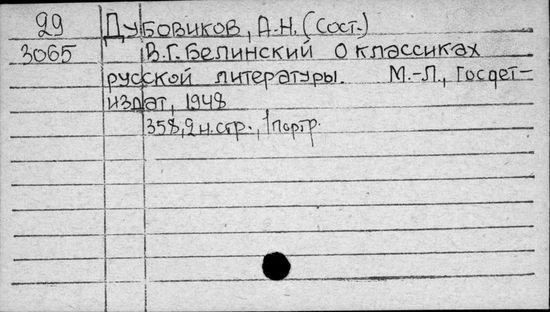 29 Дубовиков, А.Н. (Сост.)
3065 В.Г. Белинский о классиках
русской литературы. М.-Л., Госдет-
издат, 1948
358, 2 н. стр., 1 портр.